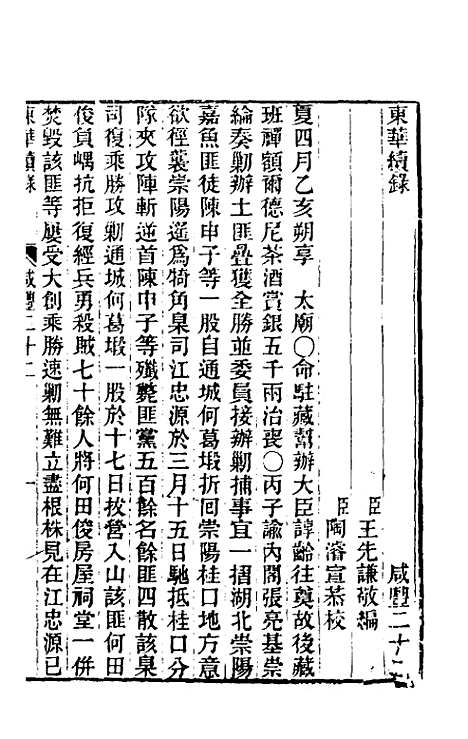 東華續錄
咸豐二十二
臣王先謙敬編
臣陶濬宣恭校
夏四月乙亥朔享　太廟〇命駐藏幫辦大臣諄齡往奠故後藏
班禪額爾德尼茶酒賞銀五千兩治喪〇丙子諭內閣張亮基崇
綸奏勦辦土匪疊獲全勝並委員接辦勦捕事宜一摺湖北崇陽
嘉魚匪徒陳申子等一股自通城何葛塅折回崇陽桂口地方意
欲徑襲崇陽遥爲犄角臬司江忠源於三月十五日馳抵桂口分
隊夾攻陣斬逆首陳申子等殲斃匪黨五百餘名餘匪四散該臬
司復乘勝攻勦通城何葛塅一股於十七日拔營入山該匪何田
俊負嵎抗拒復經兵勇殺賊七十餘人將何田俊房屋祠堂一併
焚毀該匪等屢受大創乘勝速勦無難立盡根株見在江忠源已
東華續錄
咸豐二十二
一